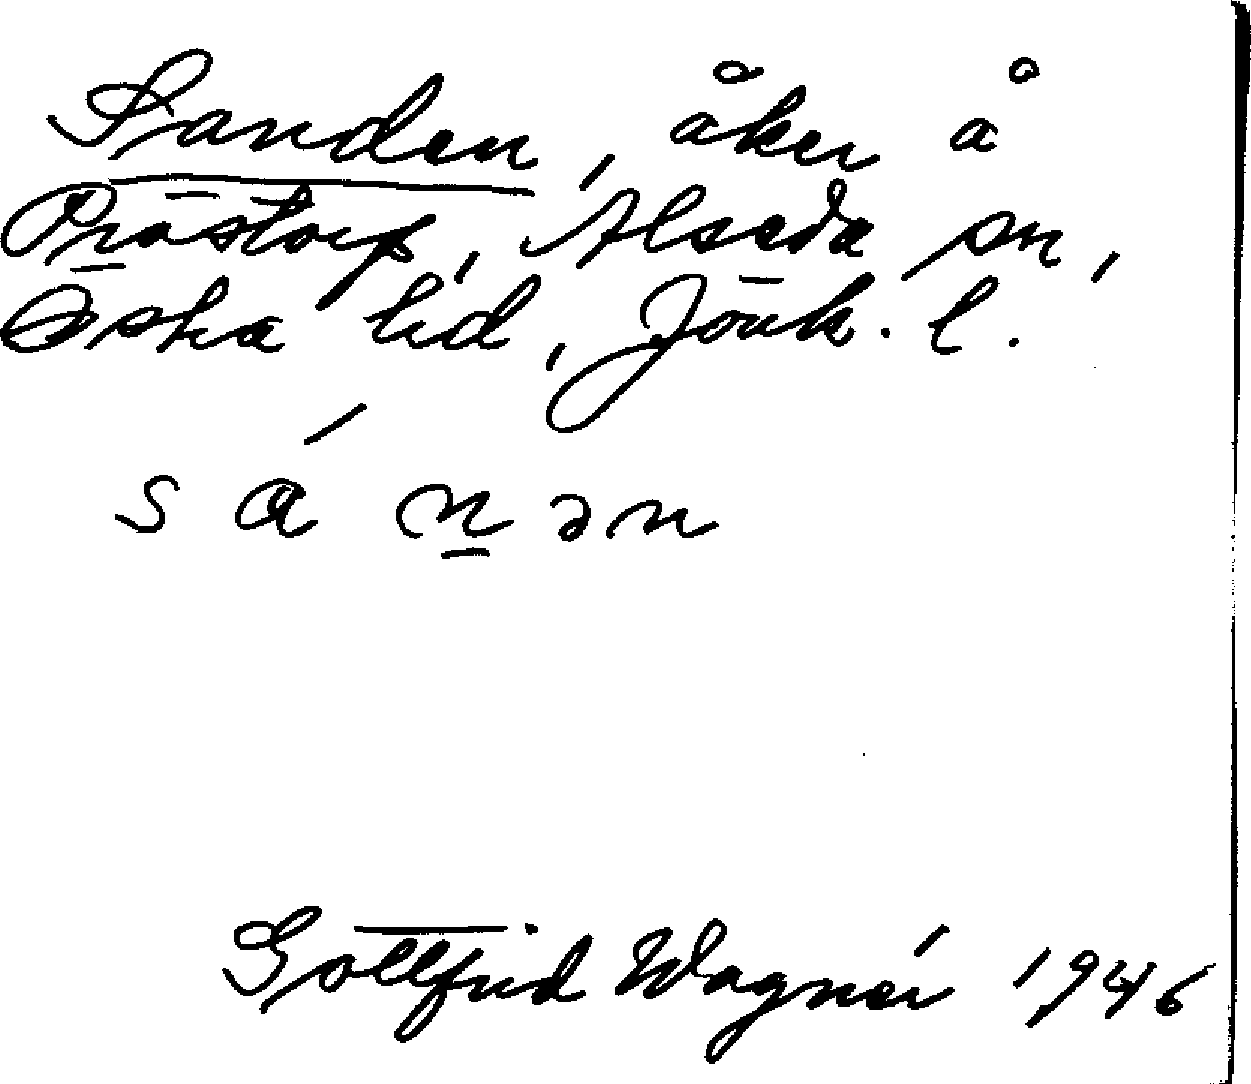 Sanden, åker å
Prästorp, Alseda sn,
Östra hd, Jönk. l.
sánən
Gottfrid Wagnér 1946